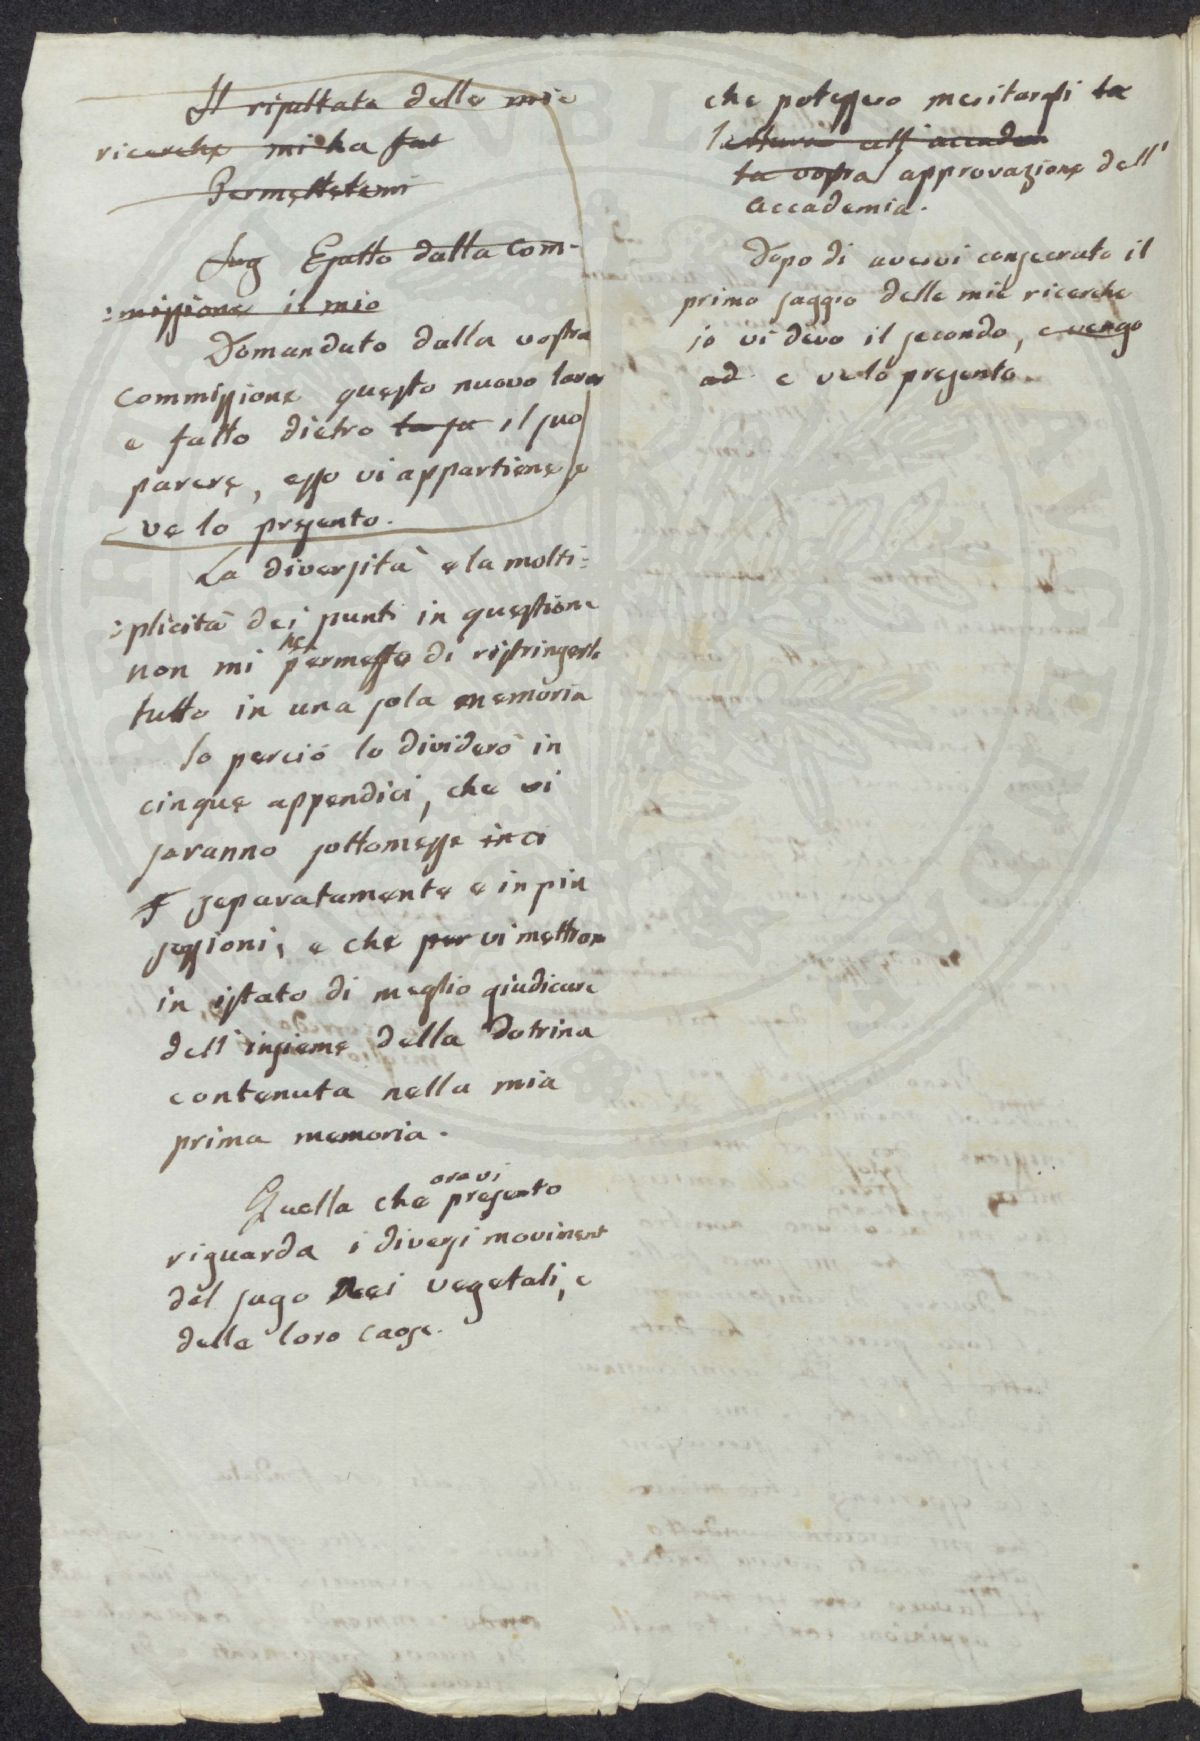 Il risultato delle mie
ricerche mi ha fat
Permettetemi
Sug Esatto dalla com-
:missione il mio
Domandato dalla vostra
commissione questo nuovo lavor
e fatto dietro la su il suo
parere, esso vi appartiene e
ve lo presento.
La diversità e la molti:
:plicità dei punti in questione
non mi ha permesso di ristringerlo
tutto in una sola memoria
Io perciò lo dividerò in
cinque appendici, che vi
saranno sottomesse in ci
separatamente e in piu
sessioni, e che per vi mettron
in istato di meglio giudicare
dell' insieme della dotrina
contenuta nella mia
prima memoria.
Quella che ora vi presento
riguarda i diversi moviment
del sugo nei vegetali, e
delle loro caose.
che potessero meritarsi la
lettura all' accadem
la vostra approvazione dell'
accademia.
Dopo di avervi consecrato il
primo saggio delle mie ricerche
io vi devo il secondo, e vengo
ad e ve lo presento.